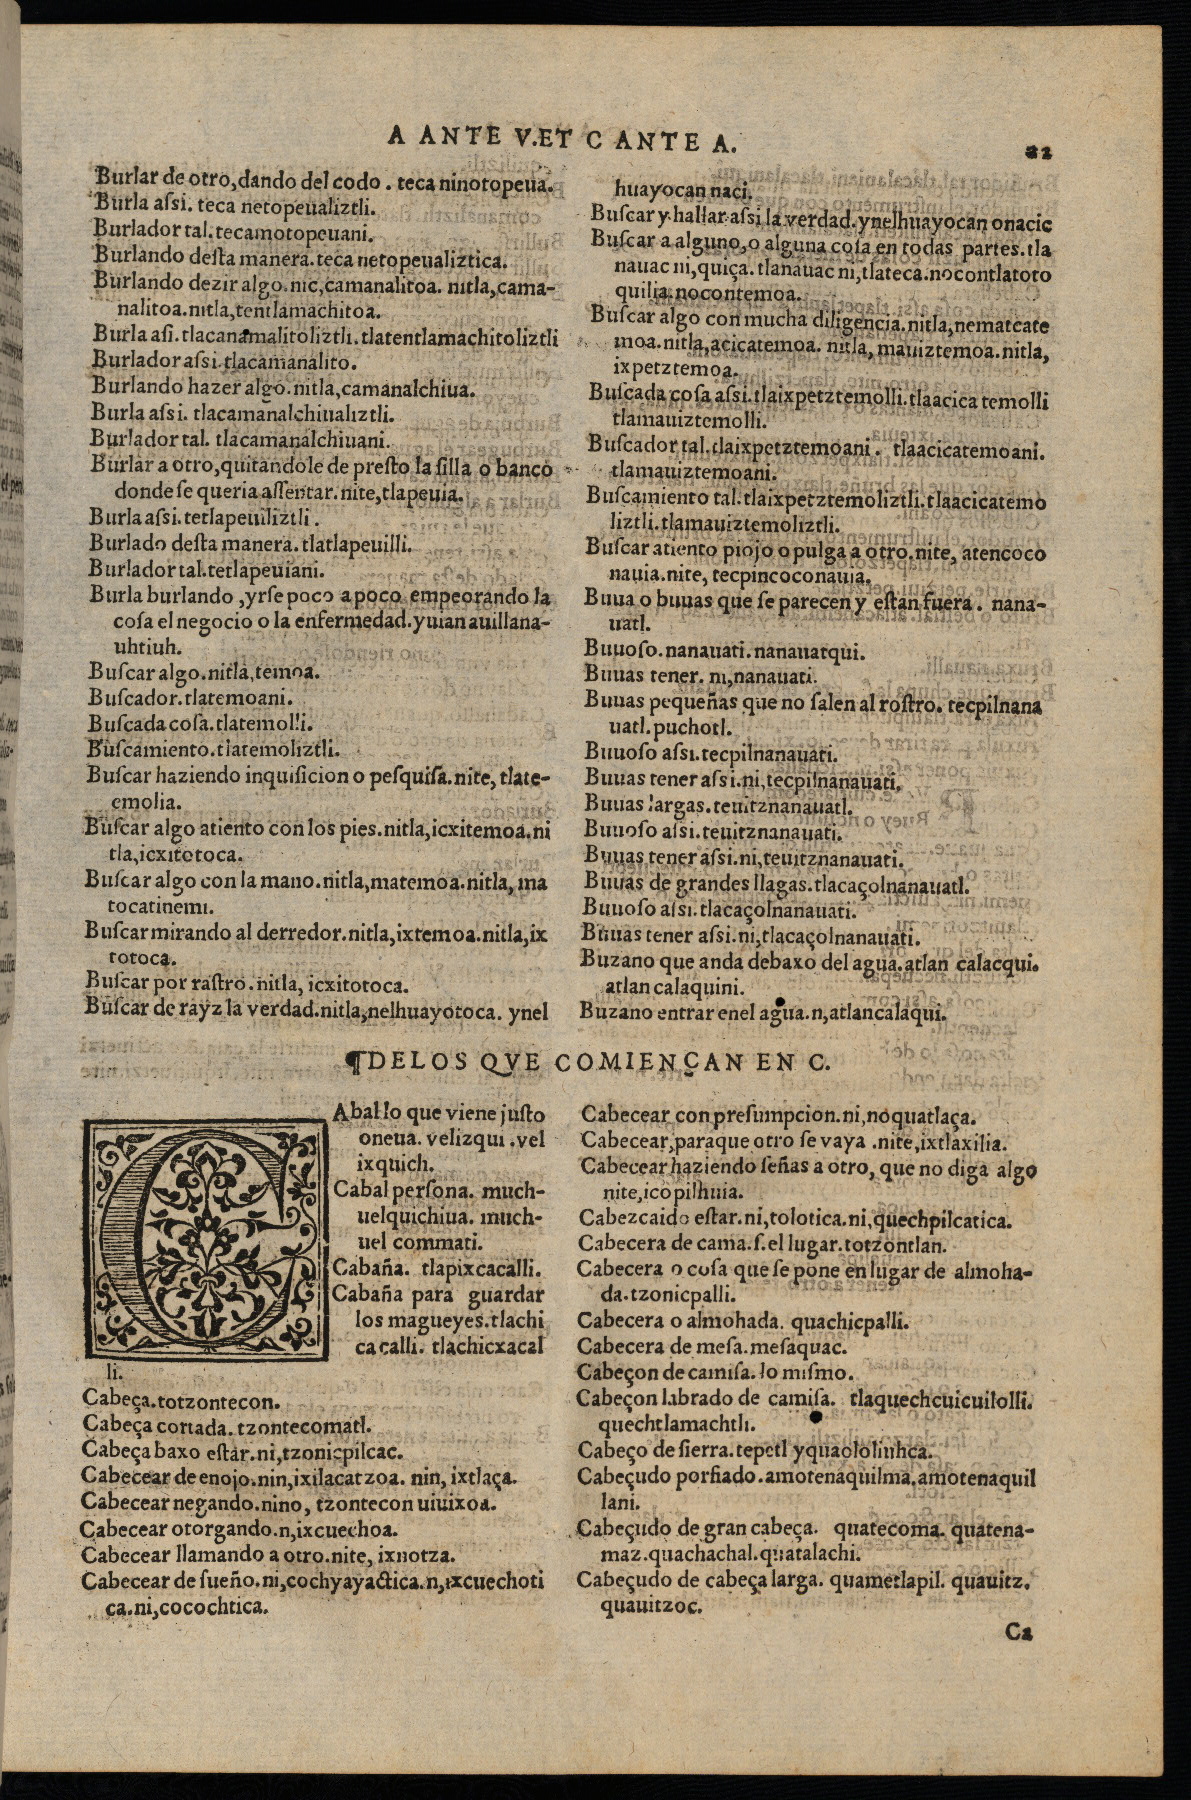 A ANTE V.ET C ANTE A.
22
Burlar de otro,dando del codo . teca ninotopeua.
Burla assi. teca netopeualiztli.
Burlador tal.tecamotopeuani.
Burlando desta manera.teca netopeualiztica.
Burlando dezir algo.nic,camanalitoa. nitla,cama-
nalitoa.nitla,tentlamachitoa.
Burla asi.tlacanamalitoliztli.tlatentlamachitoliztli
Burlador assi.tlacamanalito.
Burlando hazer algo.nitla,camanalchiua.
Burla assi. tlacamanalchiualiztli.
Burlador tal. tlacamanalchiuani.
Burlar a otro,quitandole de presto la silla o banco
donde se queria assentar.nite,tlapeuia.
Burla assi.tetlapeuiliztli.
Burlado desta manera.tlatlapeuilli.
Burlador tal.tetlapeuiani.
Burla burlando ,yrse poco a poco empeorando la
cosa el negocio o la enfermedad.yuian auillana-
uhtiuh.
Buscar algo.nitla,temoa.
Buscador.tlatemoani.
Buscada cosa.tlatemolli.
Buscamiento.tlatemoliztli.
Buscar haziendo inquisicion o pesquisa.nite, tlate-
emolia.
Buscar algo atiento con los pies.nitla,icxitemoa.ni
tla,icxitotoca.
Buscar algo con la mano.nitla,matemoa.nitla, ma
tocatinemi.
Buscar mirando al derredor.nitla,ixtemoa.nitla,ix
totoca.
Buscar por rastro.nitla, icxitotoca.
Buscar de rayz la verdad.nitla,nelhuayotoca. ynel
huayocan naci.
Buscar y hallar assi la verdad.ynelhuayocan onacic
Buscar a alguno,o alguna cosa en todas partes.tla
nauac ni,quiça. tlanauac ni,tlateca.nocontlatoto
quilia.nocontemoa.
Buscar algo con mucha diligencia.nitla,nematcate
moa.nitla,acicatemoa. nitla, mauiztemoa.nitla,
ixpetztemoa.
Buscada cosa assi.tlaixpetztemolli.tlaacica temolli
tlamauiztemolli.
Buscador tal.tlaixpetztemoani. tlaacicatemoani.
tlamauiztemoani.
Buscamiento tal.tlaixpetztemoliztli.tlaacicatemo
liztli.tlamauiztemoliztli.
Buscar atiento piojo o pulga a otro.nite, atencoco
nauia.nite, tecpincoconauia.
Buua o buuas que se parecen y estan fuera. nana-
uatl.
Buuoso.nanauati.nanauatqui.
Buuas tener. ni,nanauati.
Buuas pequeñas que no salen al rostro. tecpilnana
uatl.puchotl.
Buuoso assi.tecpilnanauati.
Buuas tener assi.ni,tecpilnanauati.
Buuas largas.teuitznanauatl.
Buuoso assi.teuitznanauati.
Buuas tener assi.ni,teuitznanauati.
Buuas de grandes llagas.tlacaçolnanauatl.
Buuoso assi.tlacaçolnanauati.
Buuas tener assi.ni,tlacaçolnanauati.
Buzano que anda debaxo del agua.atlan calacqui.
atlan calaquini.
Buzano entrar enel agua.n,atlancalaqui.
¶DELOS QVE COMIENÇAN EN C.
CAballo que viene justo
oneua. velizqui .vel
ixquich.
Cabal persona. much-
uelquichiua. much-
uel commati.
Cabaña. tlapixcacalli.
Cabaña para guardar
los magueyes.tlachi
ca calli. tlachicxacal
li.
Cabeça.totzontecon.
Cabeça cortada.tzontecomatl.
Cabeça baxo estar.ni,tzonicpilcac.
Cabecear de enojo.nin,ixilacatzoa. nin, ixtlaça.
Cabecear negando.nino, tzontecon uiuixoa.
Cabecear otorgando.n,ixcuechoa.
Cabecear llamando a otro.nite, ixnotza.
Cabecear de sueño.ni,cochyayactica.n,ixcuechoti
ca.ni,cocochtica.
Cabecear con presumpcion.ni,noquatlaça.
Cabecear,paraque otro se vaya .nite,ixtlaxilia.
Cabecear haziendo señas a otro, que no diga algo
nite,icopilhuia.
Cabezcaido estar.ni,tolotica.ni,quechpilcatica.
Cabecera de cama.s.el lugar.totzontlan.
Cabecera o cosa que se pone en lugar de almoha-
da.tzonicpalli.
Cabecera o almohada. quachicpalli.
Cabecera de mesa.mesaquac.
Cabeçon de camisa.lo mismo.
Cabeçon labrado de camisa. tlaquechcuicuilolli.
quechtlamachtli.
Cabeço de sierra.tepetl yquaololiuhca.
Cabeçudo porfiado.amotenaquilma.amotenaquil
lani.
Cabeçudo de gran cabeça. quatecoma. quatena-
maz.quachachal.quatalachi.
Cabeçudo de cabeça larga. quametlapil. quauitz.
quauitzoc.
Ca